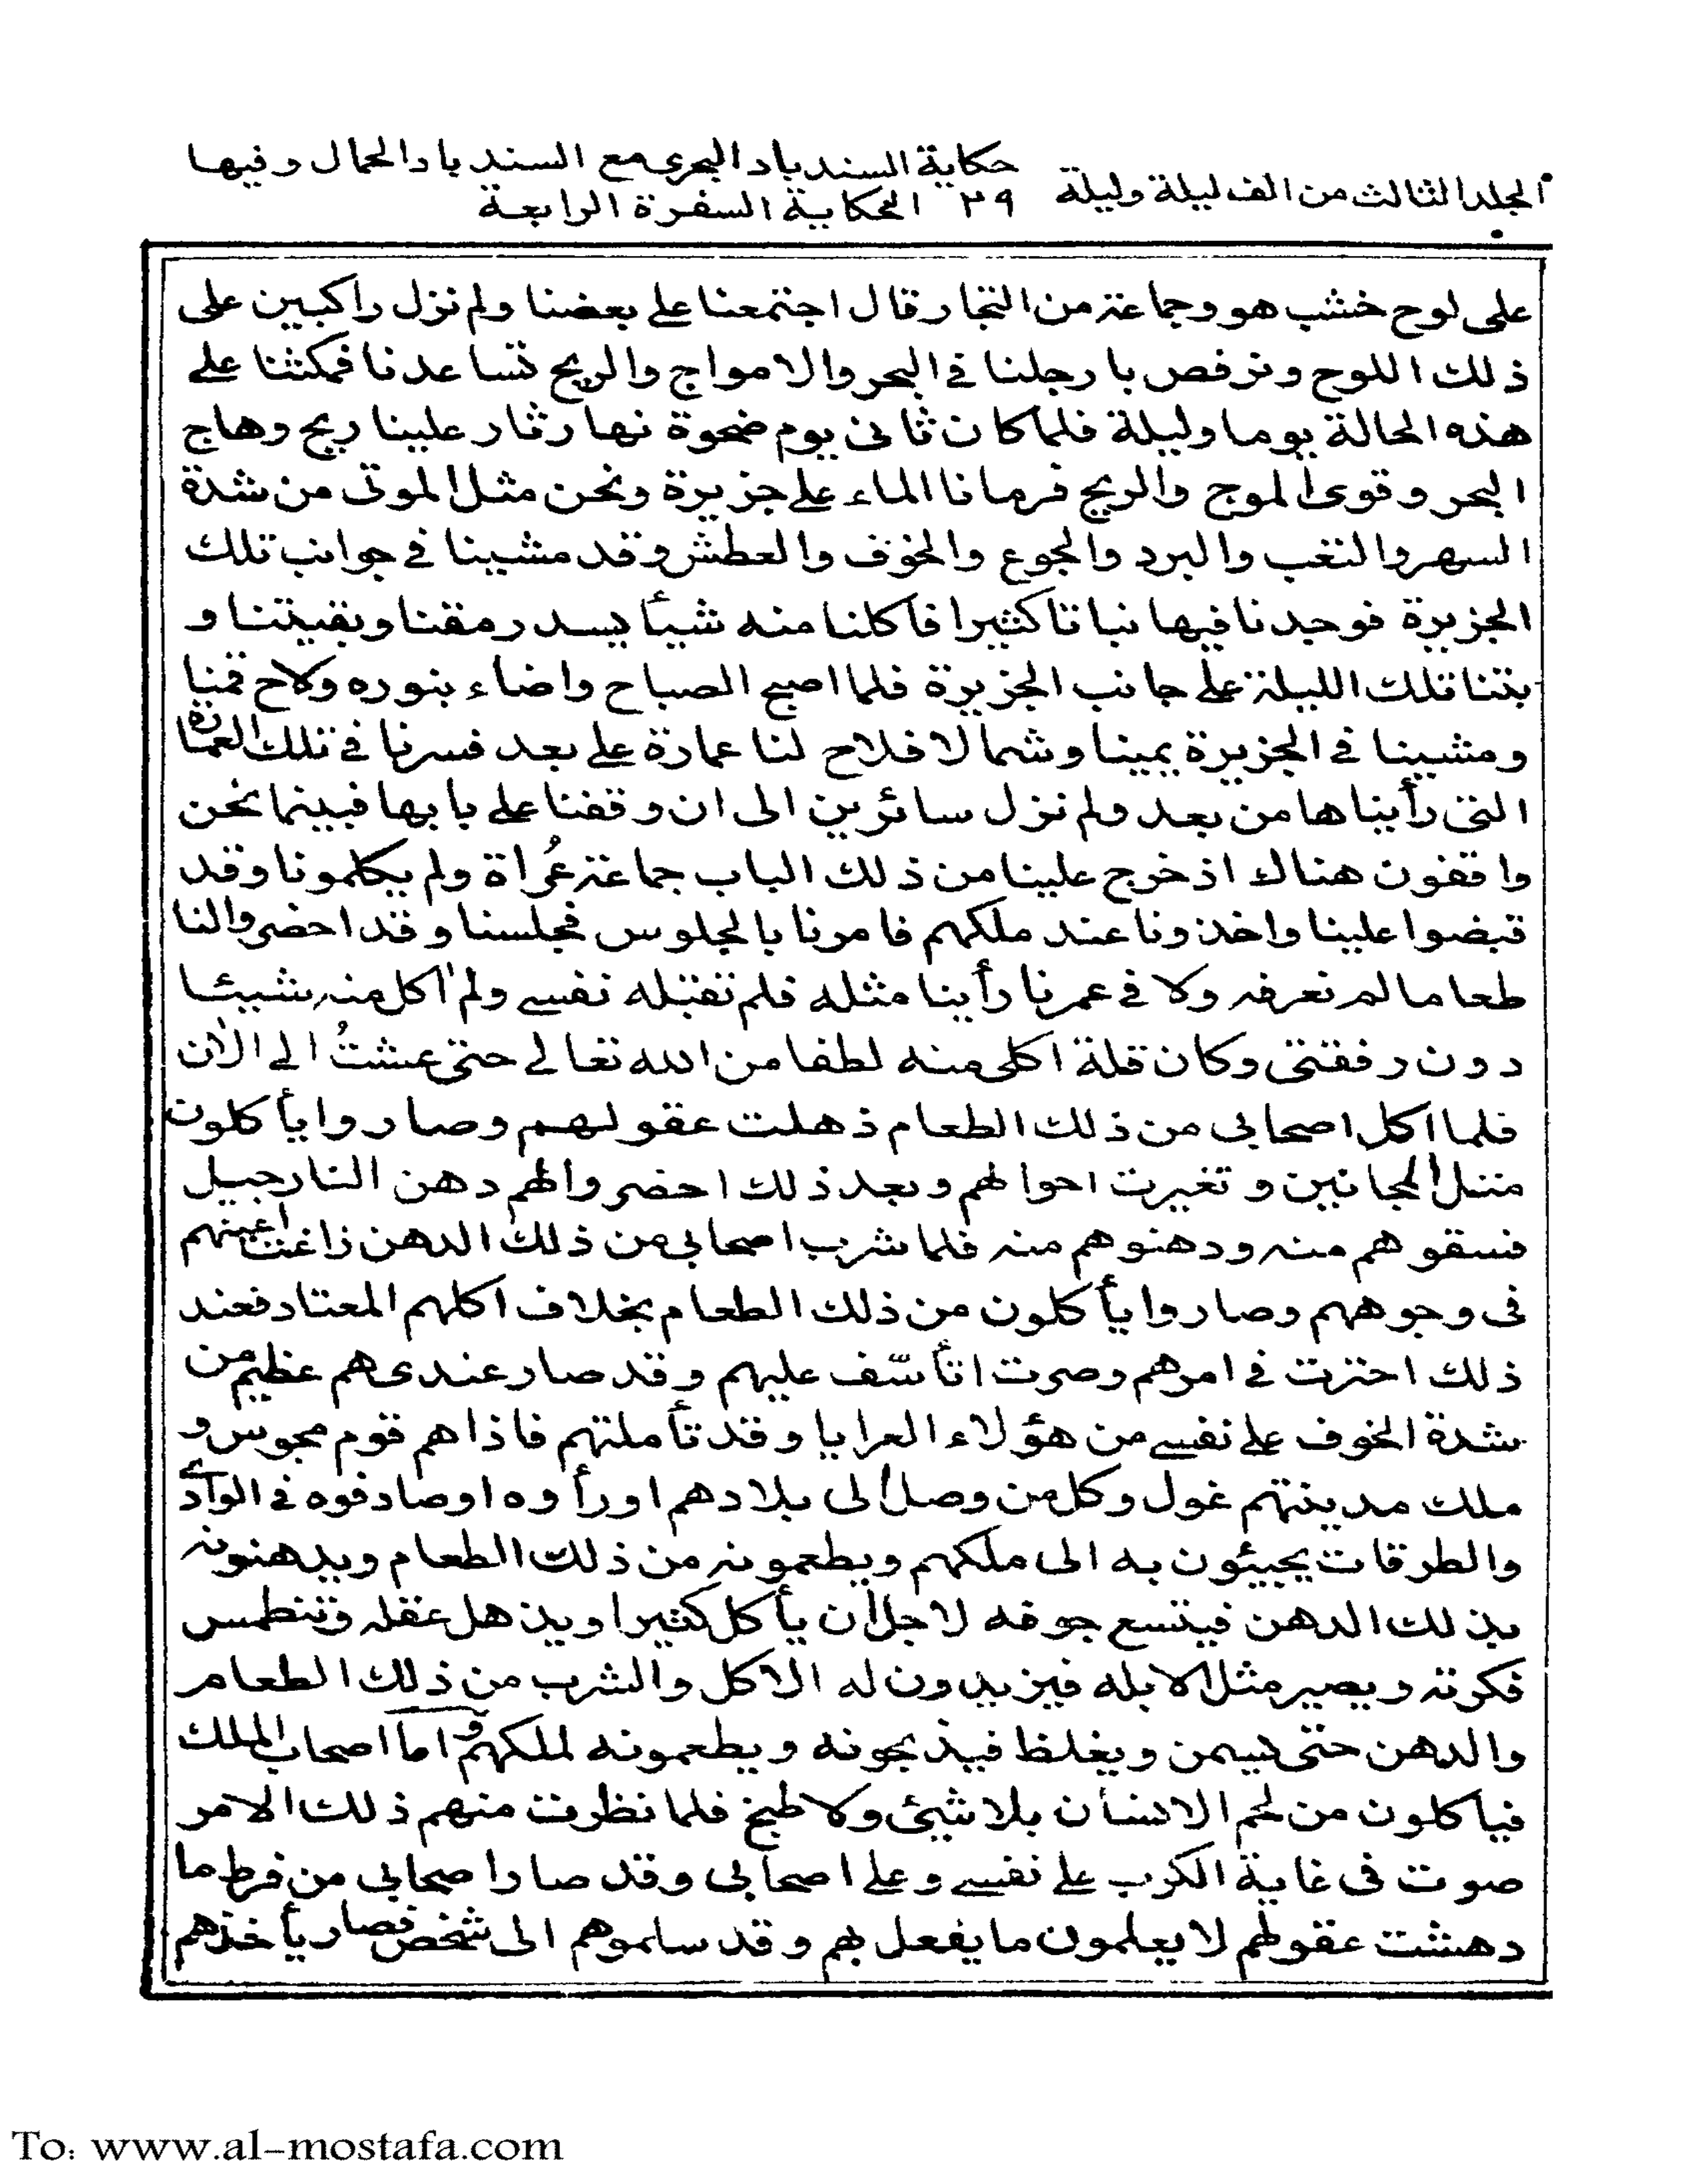 المجلد الثالث من الف ليلة وليلة
حكاية السندباد البحري مع السندباد الحمال وفيها
٢٩ الحكاية السفرة الرابعة
على لوح خشب هو وجماعة من التجار قال اجتمعنا على بعضنا ولم نزل راكبين على
ذلك اللوح ونرفص بارجلنا في البحر والامواج والريح تساعدنا فمكثنا على
هذه الحالة يوما وليلة فلما كان ثانى يوم ضحوة نهار ثار علينا ريح وهاج
البحر وقوى الموج والريح فرمانا الماء على جزيرة ونحن مثل الموتى من شدة
السهر والتعب والبرد والجوع والخوف والعطش وقد مشينا في جوانب تلك
الجزيرة فوجدنا فيها نباتا كثيرا فاكلنا منه شيأ يسد رمقنا ويقيتنا و
بتنا تلك الليلة على جانب الجزيرة فلما اصبح الصباح واضاء بنوره ولاح قمنا
ومشينا في الجزيرة يمينا وشمالا فلاح لنا عمارة على بعد فسرنا في تلك العمارة
التى رأيناها من بعد ولم نزل سائرين الى ان وقفنا على بابها فبينما نحن
واقفون هناك اذ خرج علينا من ذلك الباب جماعة عُراة ولم يكلمونا وقد
قبضوا علينا واخذونا عند ملكهم فامرنا بالجلوس فجلسنا وقد احضروا لنا
طعاما لم نعرفه ولا في عمرنا رأينا مثله فلم تقبله نفسي ولم اكل منه شيئا
دون رفقتى وكان قلة اكلى منه لطفا من الله تعالى حتى عشتُ الى الان
فلما اكل اصحابى من ذلك الطعام ذهلت عقولهم وصاروا يأكلون
مثل المجانين وتغيرت احوالهم وبعد ذلك احضروا لهم دهن النارجيل
فسقوهم منه ودهنوهم منه فلما شرب اصحابى من ذلك الدهن زاغت اعينهم
فى وجوههم وصاروا يأكلون من ذلك الطعام بخلاف اكلهم المعتاد فعند
ذلك احترت في امرهم وصرت اتأسّف عليهم وقد صار عندى هم عظيم من
شدة الخوف على نفسي من هؤلاء العرايا وقد تأملتهم فاذا هم قوم مجوس و
ملك مدينتهم غول وكل من وصل الى بلادهم او رأوه او صادفوه في الوادى
والطرقات يجيئون به الى ملكهم ويطعمونه من ذلك الطعام ويدهنونه
بذلك الدهن فيتسع جوفه لاجل ان يأكل كثيرا ويذهل عقله وتنطمس
فكرته ويصير مثل الابله فيزيدون له الاكل والشرب من ذلك الطعام
والدهن حتى يسمن ويغلظ فيذبحونه ويطعمونه لملكهم واما اصحاب الملك
فياكلون من لحم الانسان بلا شيئ ولا طبخ فلما نظرت منهم ذلك الامر
صرت فى غاية الكرب على نفسي وعلى اصحابى وقد صار اصحابى من فرط ما
دهشت عقولهم لا يعلمون ما يفعل بهم وقد سلموهم الى شخص فصار يأخذهم
To: www.al-mostafa.com